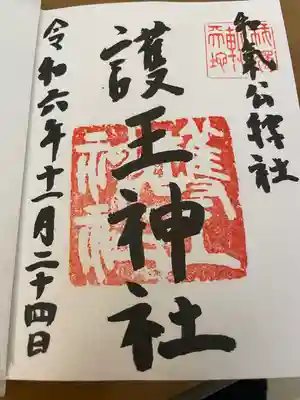 和氣公綜社
護王神社
護王
神社
令和六年十一月二十四日